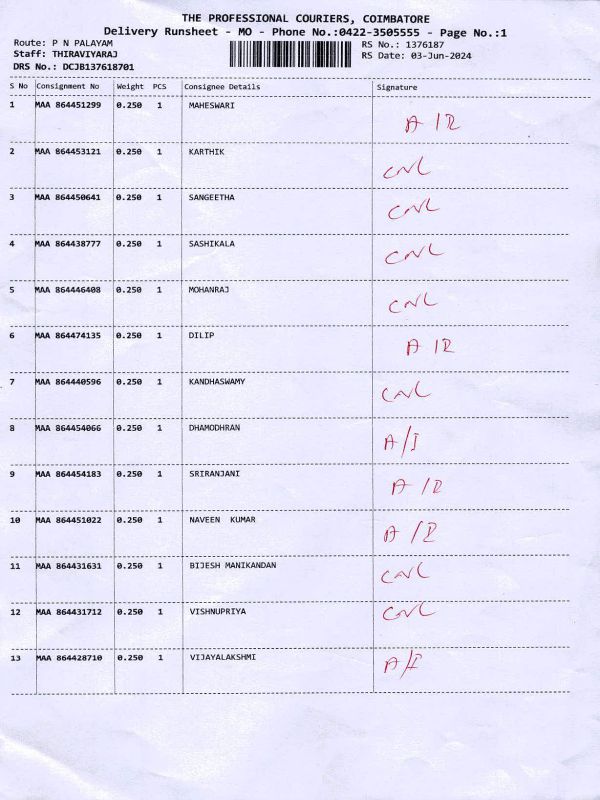 THE PROFESSIONAL COURIERS, COIMBATORE
Delivery Runsheet - MO - Phone No.:0422-3505555 - Page No.:1
Route: P N PALAYAM RS No.: 1376187
Staff: THIRAVIYARAJ RS Date: 03-Jun-2024
DRS No.: DCJB137618701
S No Consignment No Weight PCS Consignee Details Signature
1 MAA 864451299 0.250 1 MAHESWARI
A/R
2 MAA 864453121 0.250 1 KARTHIK
CNL
3 MAA 864450641 0.250 1 SANGEETHA
CNL
4 MAA 864438777 0.250 1 SASHIKALA
CNL
5 MAA 864446408 0.250 1 MOHANRAJ
CNL
6 MAA 864474135 0.250 1 DILIP
A/R
7 MAA 864440596 0.250 1 KANDHASWAMY
CNL
8 MAA 864454066 0.250 1 DHAMODHRAN
A/I
9 MAA 864454183 0.250 1 SRIRANJANI
A/R
10 MAA 864451022 0.250 1 NAVEEN KUMAR
A/R
11 MAA 864431631 0.250 1 BIJESH MANIKANDAN
CNL
12 MAA 864431712 0.250 1 VISHNUPRIYA
CNL
13 MAA 864428710 0.250 1 VIJAYALAKSHMI
A/I